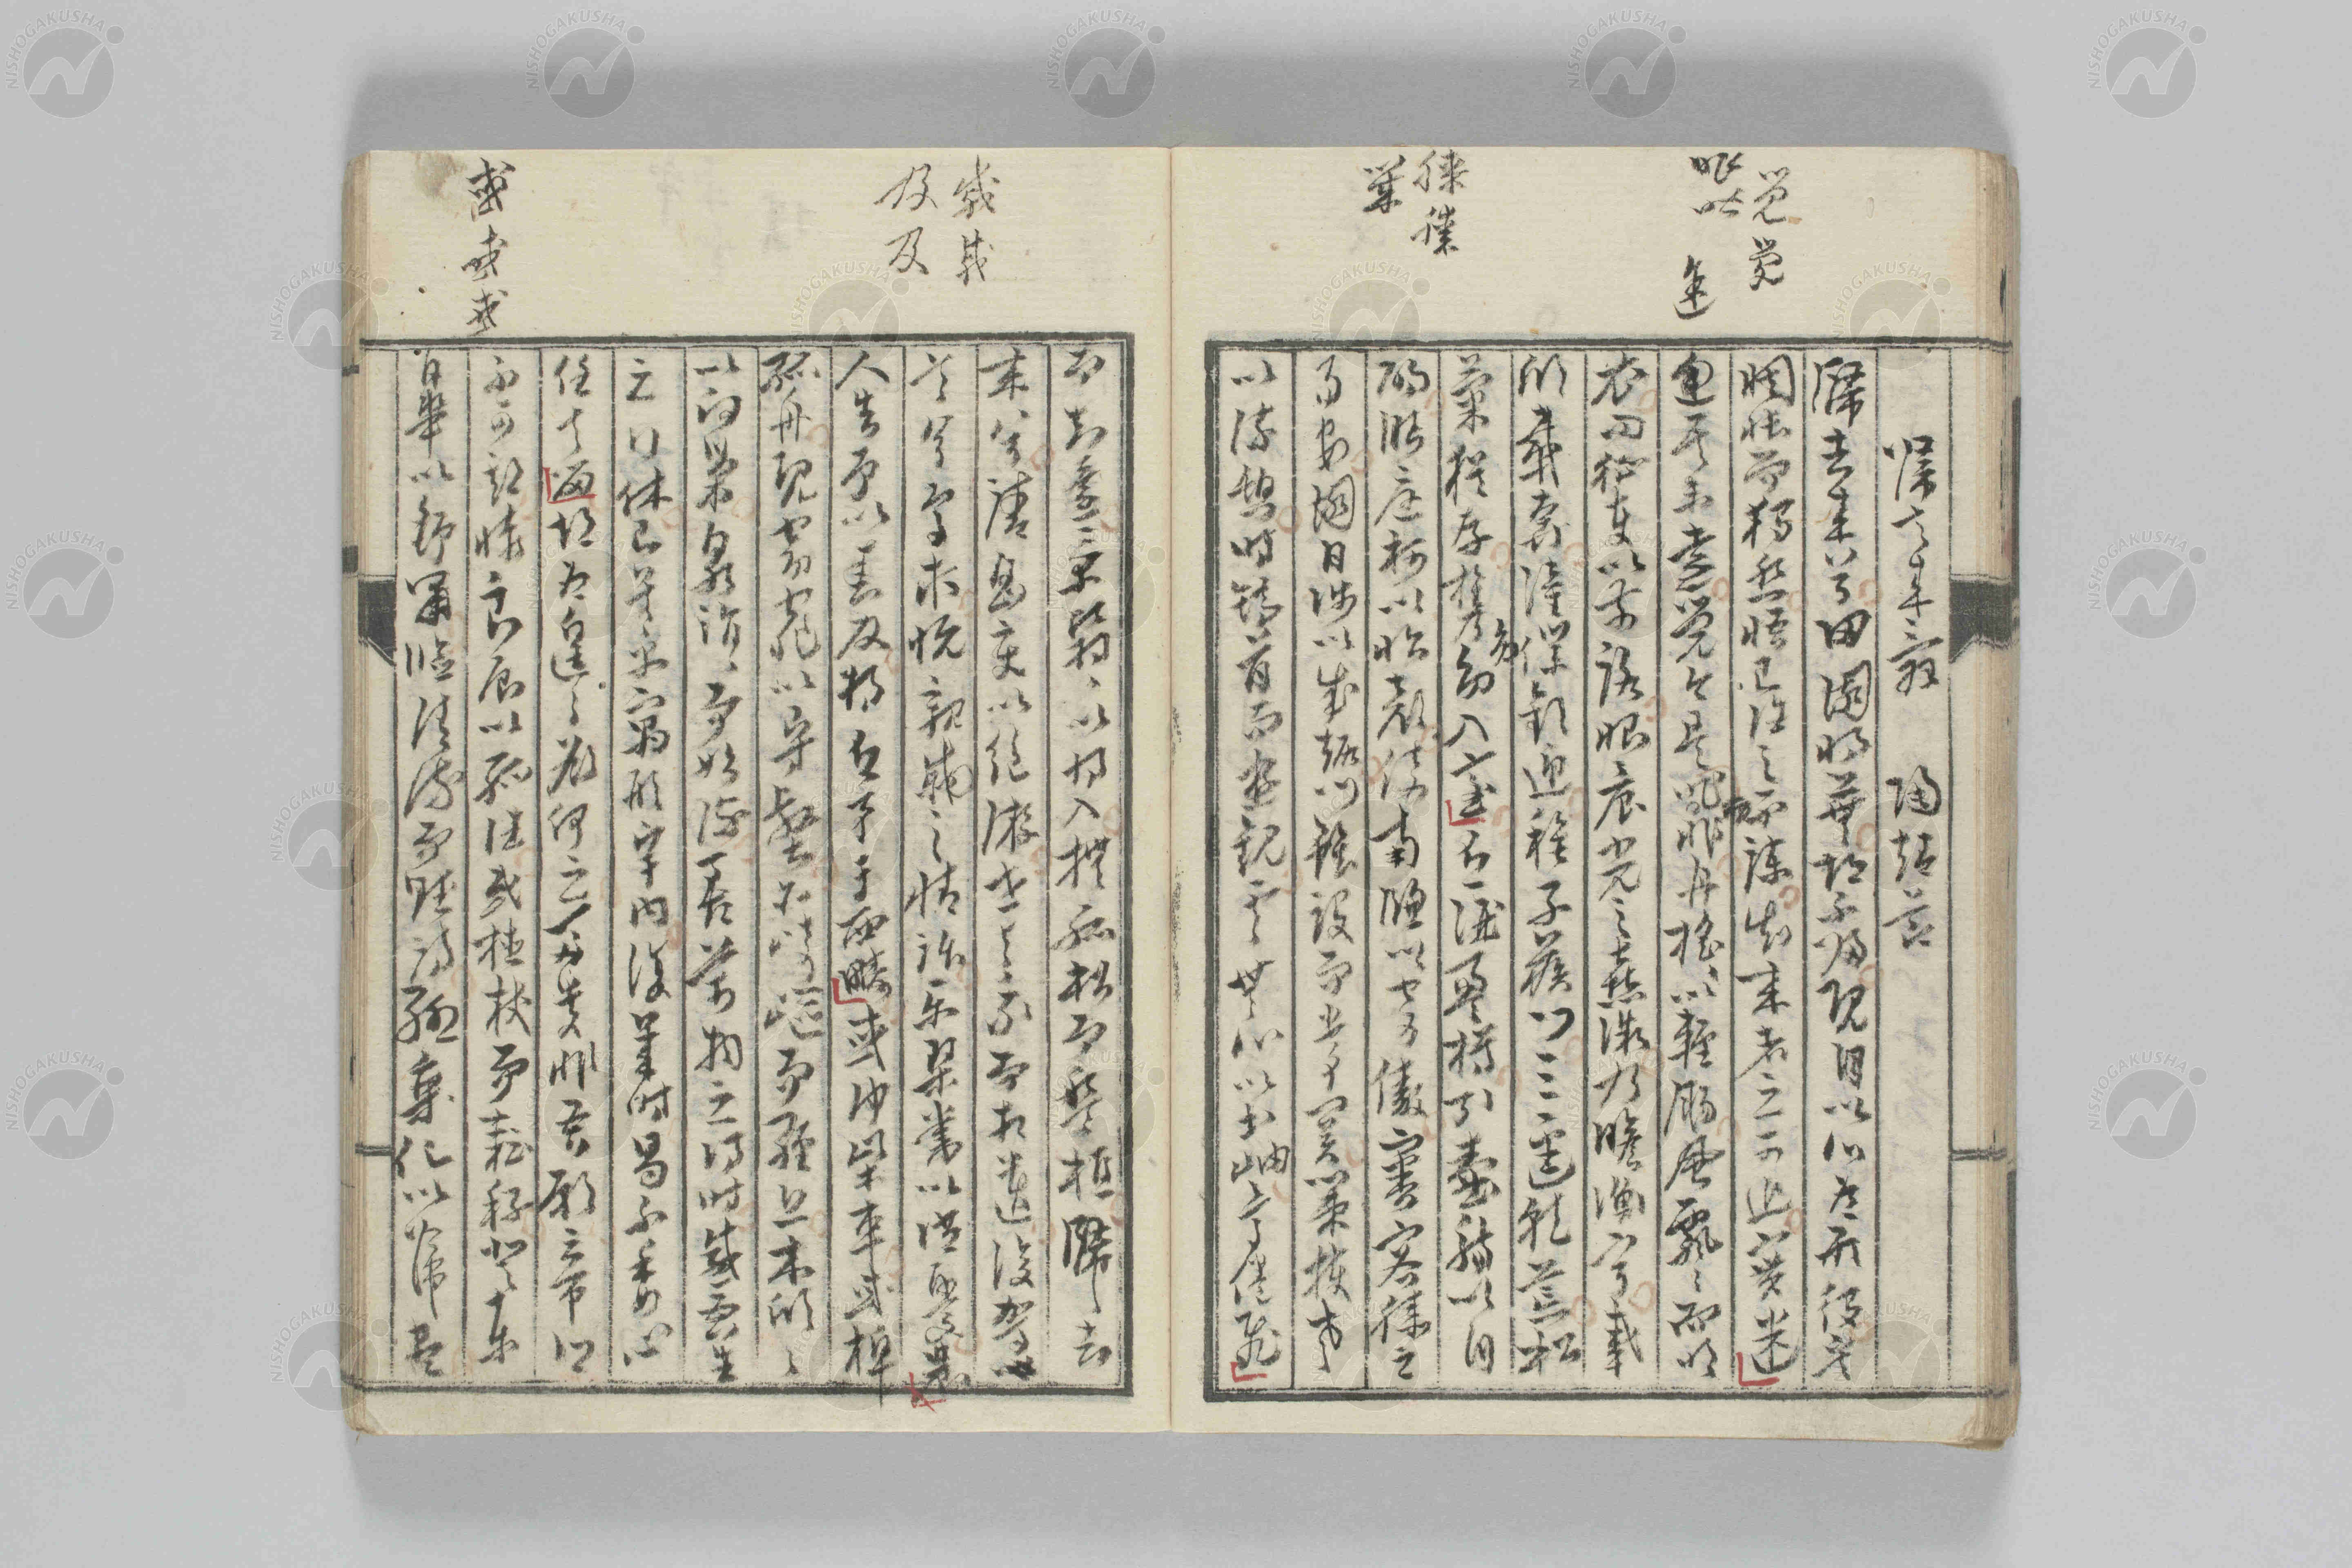 歸去来辞　陶靖節
歸去来兮田園將蕪胡不歸既自以心為形役奚
惆悵而獨悲悟已往之不諫知来者之可追寔迷
途其未遠覚今是而昨非舟揺々以輕颺風飄々而吹
衣問征夫以前路恨晨光之熹微乃瞻衡宇載
欣載奔僮僕歓迎稚子候門三逕就荒松
菊猶存携幼入室有酒盈樽引壺觴以自
酌眄庭柯以怡顔倚南牕以寄傲審容膝之
易安園日渉以成趣門雖設而常関策扶老
以流憩時矯首而遐観雲無心以出岫鳥倦飛
而知還景翳々以将入撫孤松而盤桓歸去
来兮請息交以絶游世与我而相遺復駕言
兮焉求悦親戚之情話楽琴書以消憂農
人告予以春及将有事于西疇或命巾車或棹
孤舟既窈窕以尋壑亦崎嶇而経丘木欣々
以向榮泉涓々而始流善萬物之得時感吾生
之行休已矣乎寓形宇内復幾時曷不委心
任去留胡為遑々欲何之富貴非吾願帝郷
不可期懐良辰以孤往或植杖而耘耔登東
皋以舒嘯臨清流而賦詩聊乗化以歸尽
覚覚
昨
途
膝膝
戚戚
及及
或或